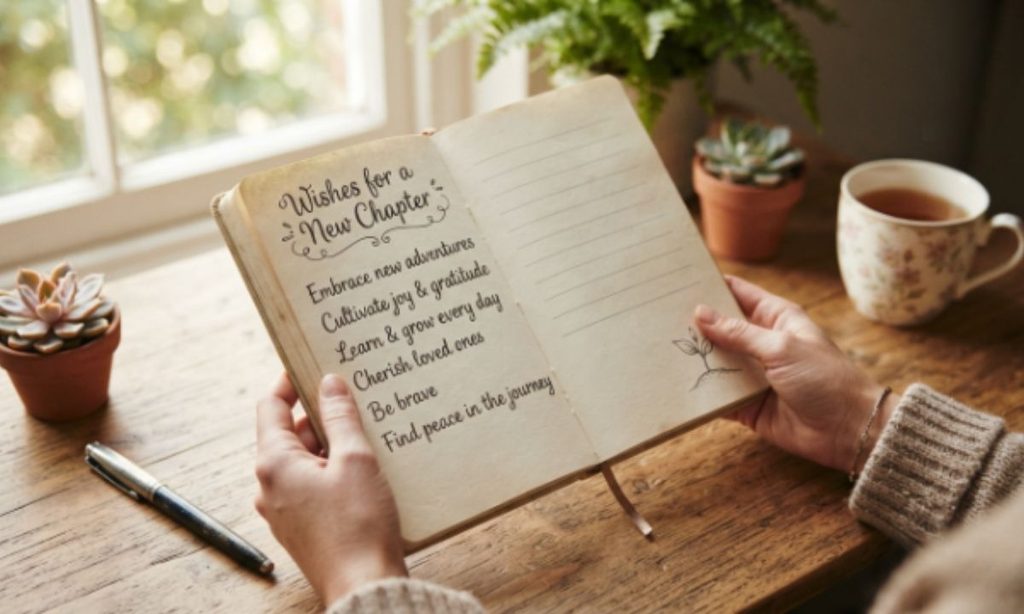 Wishes for a
New Chapter
Embrace new adventures
Cultivate joy & gratitude
Learn & grow every day
Cherish loved ones
Be brave
Find peace in the journey